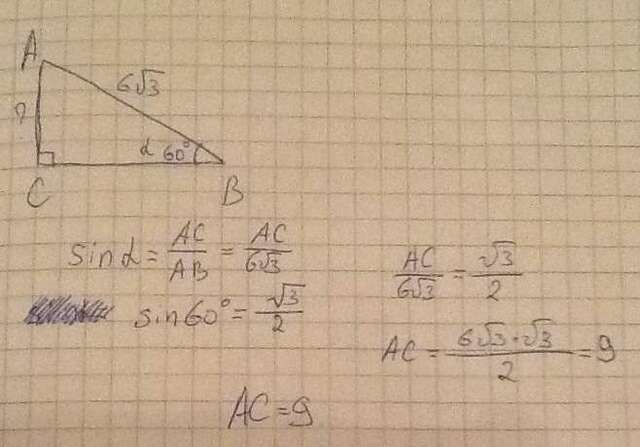 A
6√3
?
α 60°
C B
sin α = AC/AB = AC/6√3
sin 60° = √3/2
AC/6√3 = √3/2
AC = 6√3·√3/2 = 9
AC = 9